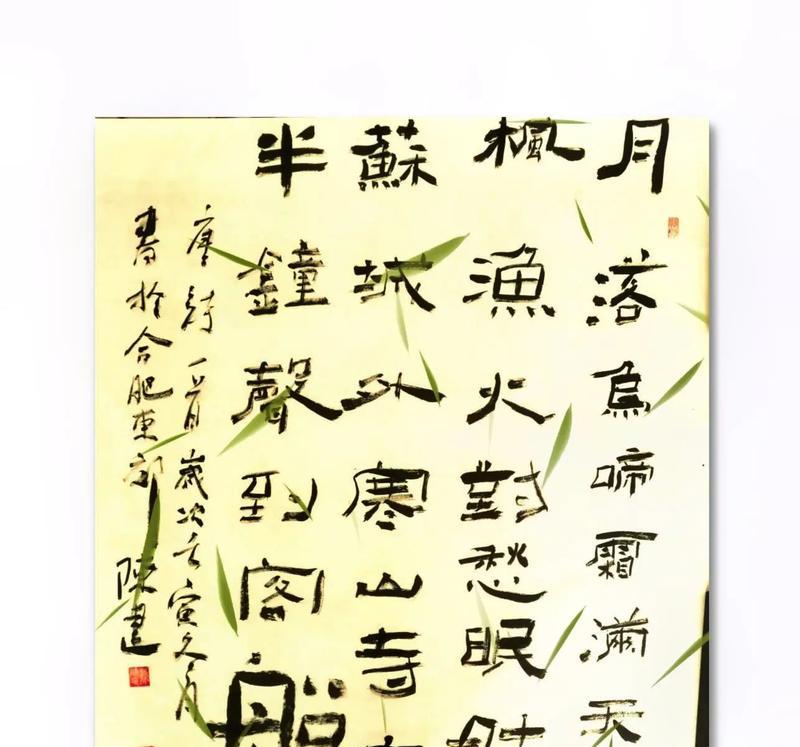 月落烏啼霜滿天
楓漁火對愁眠姑
蘇城外寒山寺
半鐘聲到客船
唐詩一首歲次壬寅月
書於合肥東陳建